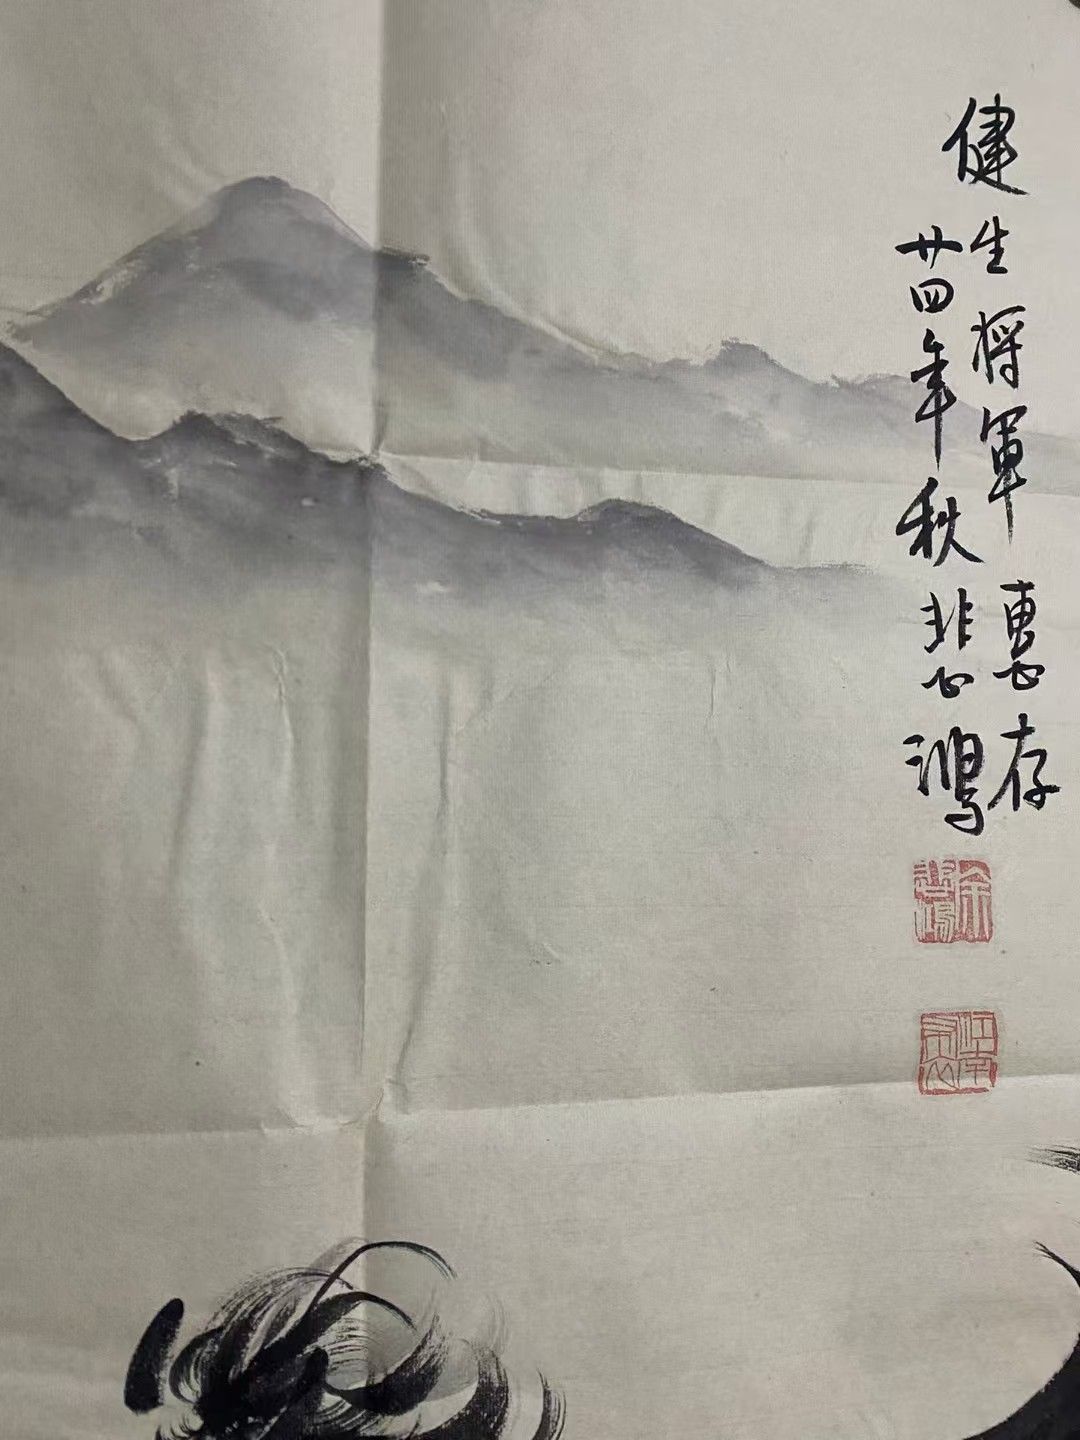 健生将軍惠存
廿四年秋悲鴻
徐悲鴻
江南布衣